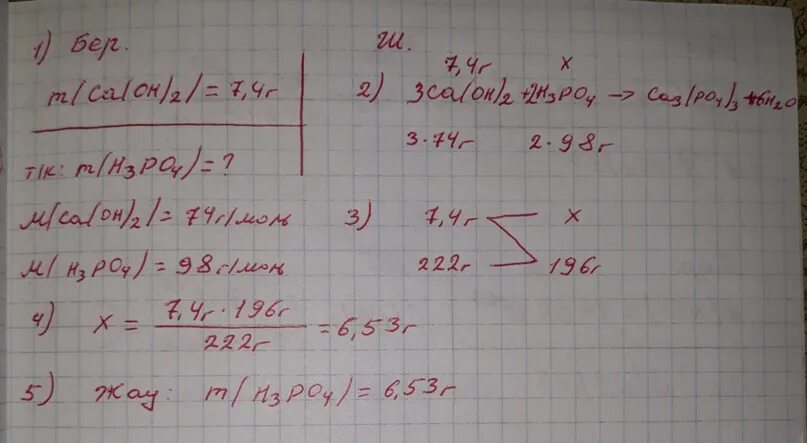 1) Бер.
m(Ca(OH)2) = 7,4г
т/к: m(H3PO4) = ?
M(Ca(OH)2) = 74г/моль
M(H3PO4) = 98г/моль
Ш.
7,4г x
2) 3Ca(OH)2 + 2H3PO4 -> Ca3(PO4)3 + 6H2O
3·74г 2·98г
3) 7,4г x
222г 196г
4) x = 7,4г·196г / 222г = 6,53г
5) Жау: m(H3PO4) = 6,53г